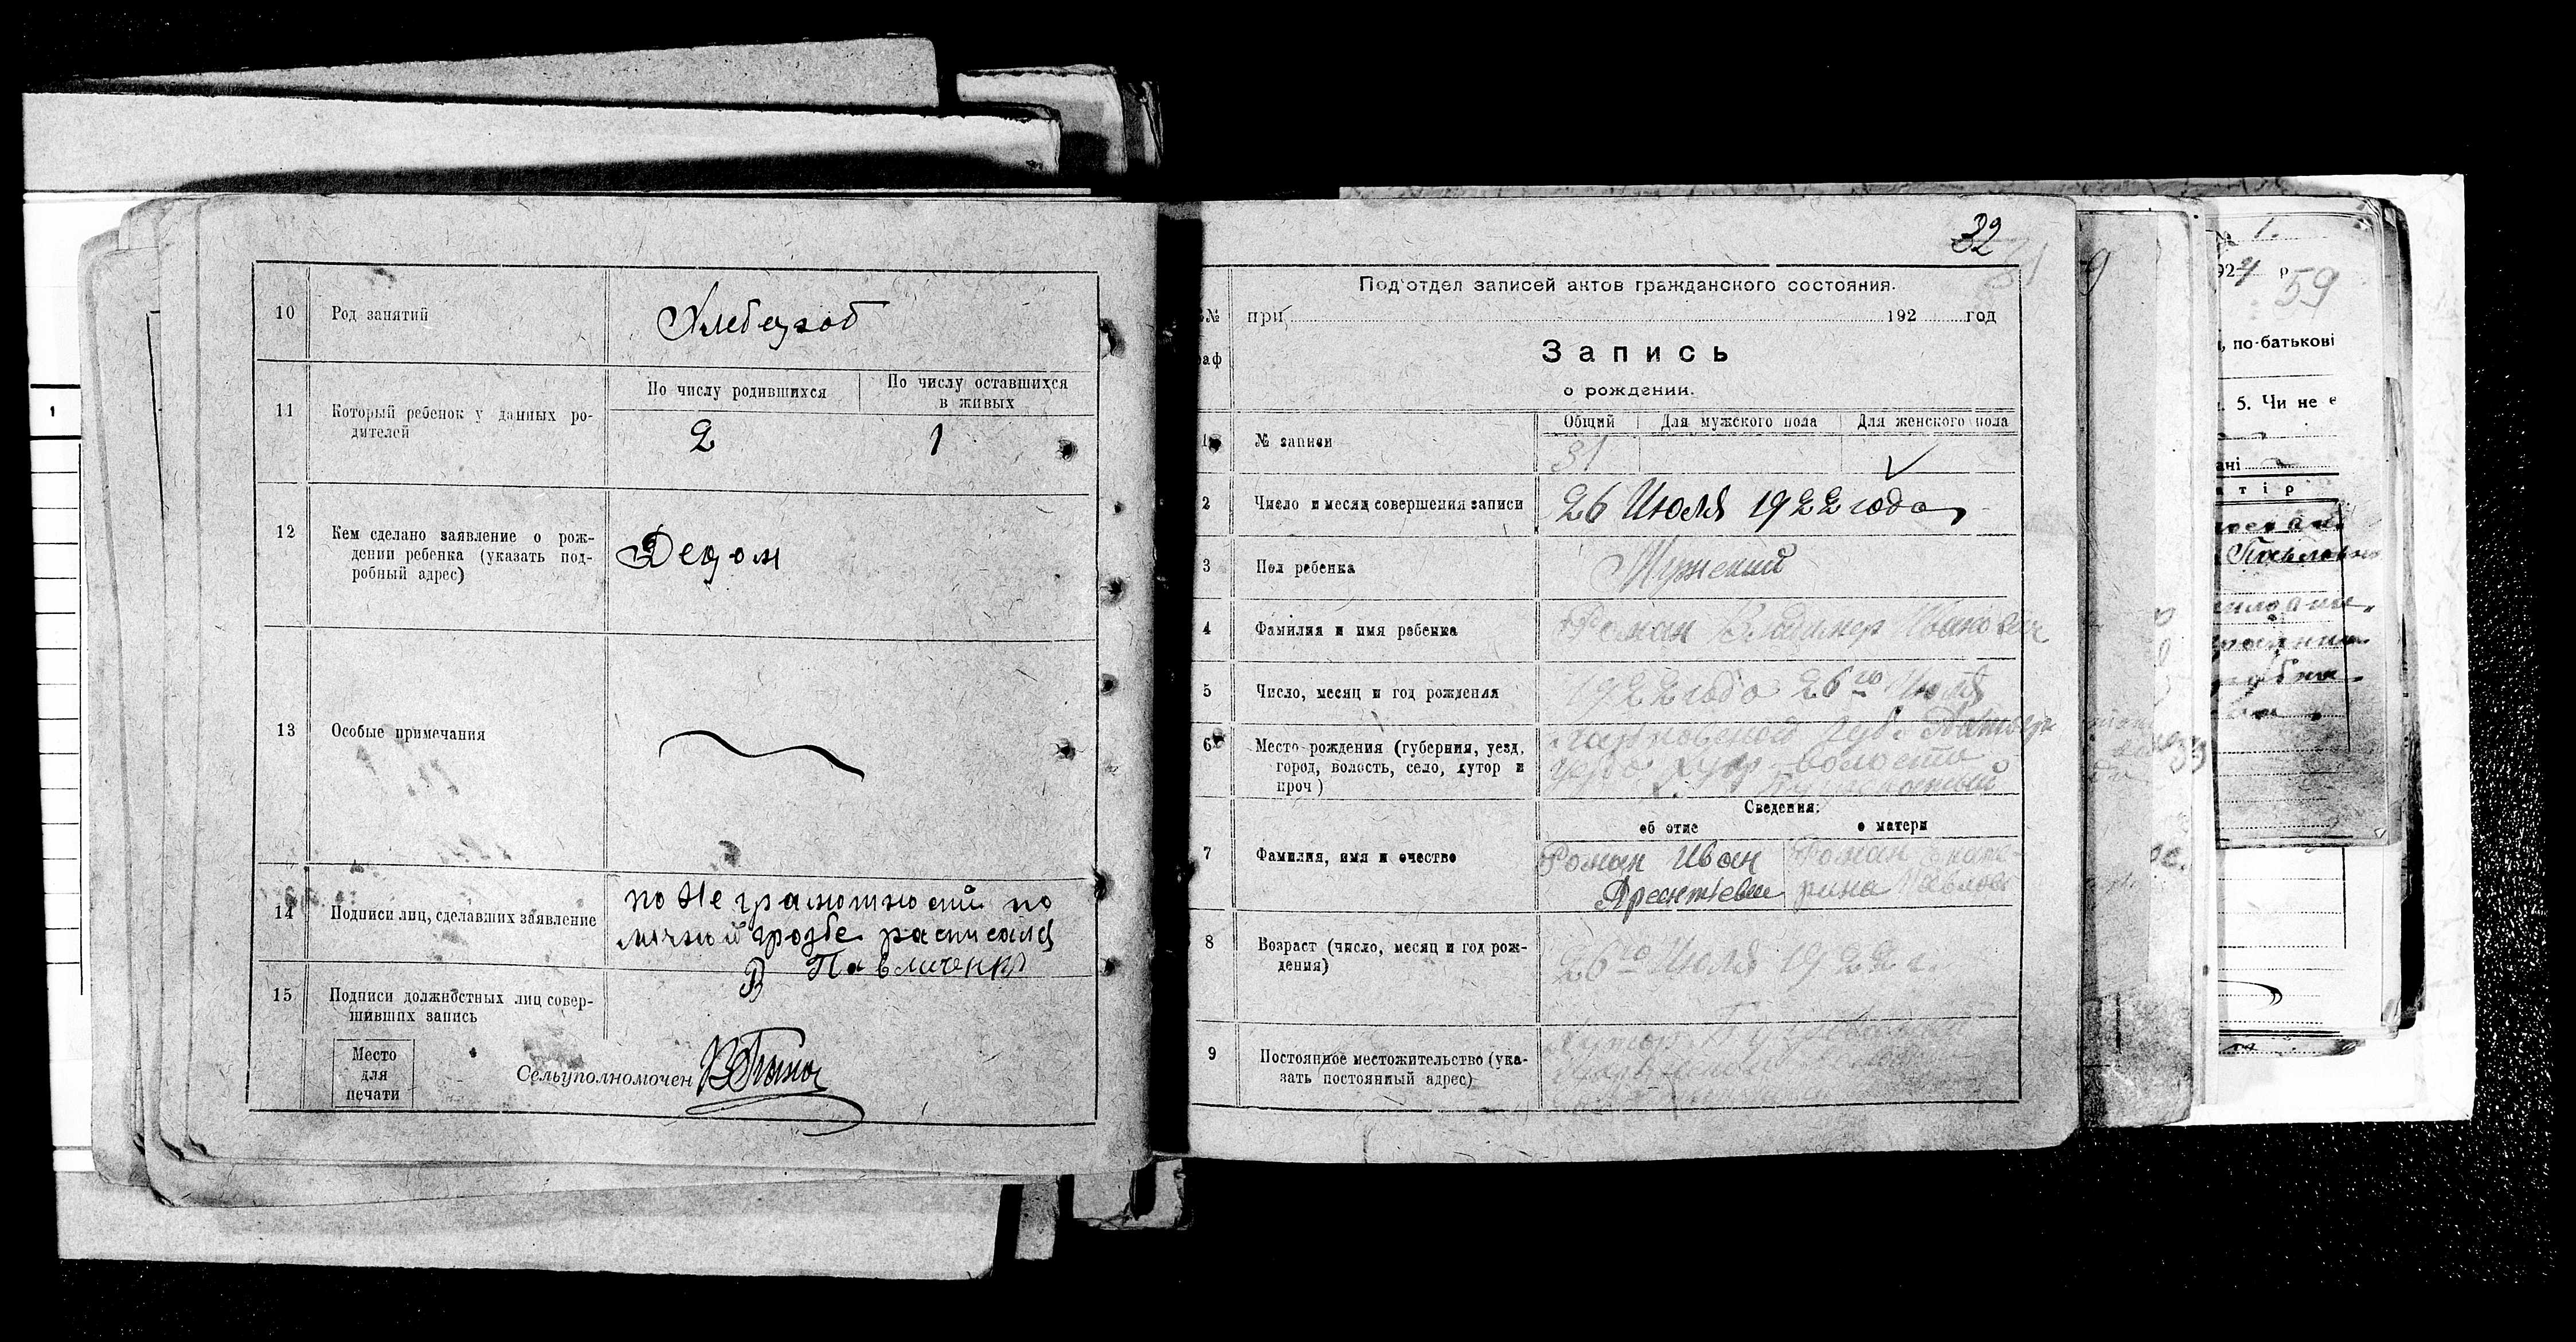 10 Род занятий Хлебороб
11 Который ребенок у данных ро-
дителей
По числу родившихся
По числу оставшихся
в живых
2 1
12 Кем сделано заявление о рож-
дении ребенка (указать под-
робный адрес)
Дедом
13 Особые примечания
14 Подписи лиц, сделавших заявление
по не грамотности по
личной прозбе расписался
В Павличенко
15 Подписи должностных лиц совер-
шивших запись
Место
для
печати
Сельуполномочен
32
31
Под'отдел записей актов гражданского состояния.
№ при 192 год
аф
Запись
о рождении.
Общий Для мужского пола Для женского пола
1 № записи 31
2 Число и месяц совершения записи 26 Июля 1922 года
3 Пол ребенка Мужский
4 Фамилия и имя ребенка Роман Владимер Иванович
5 Число, месяц и год рождения 1922 года 26го Июля
6 Место рождения (губерния, уезд,
город, волость, село, хутор и
проч)
Харьковской губ.
волости
Сведения:
об отце о матери
7 Фамилия, имя и очество
Роман Иван
Роман Екате-
рина Павлов
8 Возраст (число, месяц и год рож-
дения)
26го Июля 1922 г.
9 Постоянное местожительство (ука-
зать постоянный адрес)
Хутор
№ 1.
1924 р
59
, по-батькові
5. Чи не є
ані
атір
Павловна
1